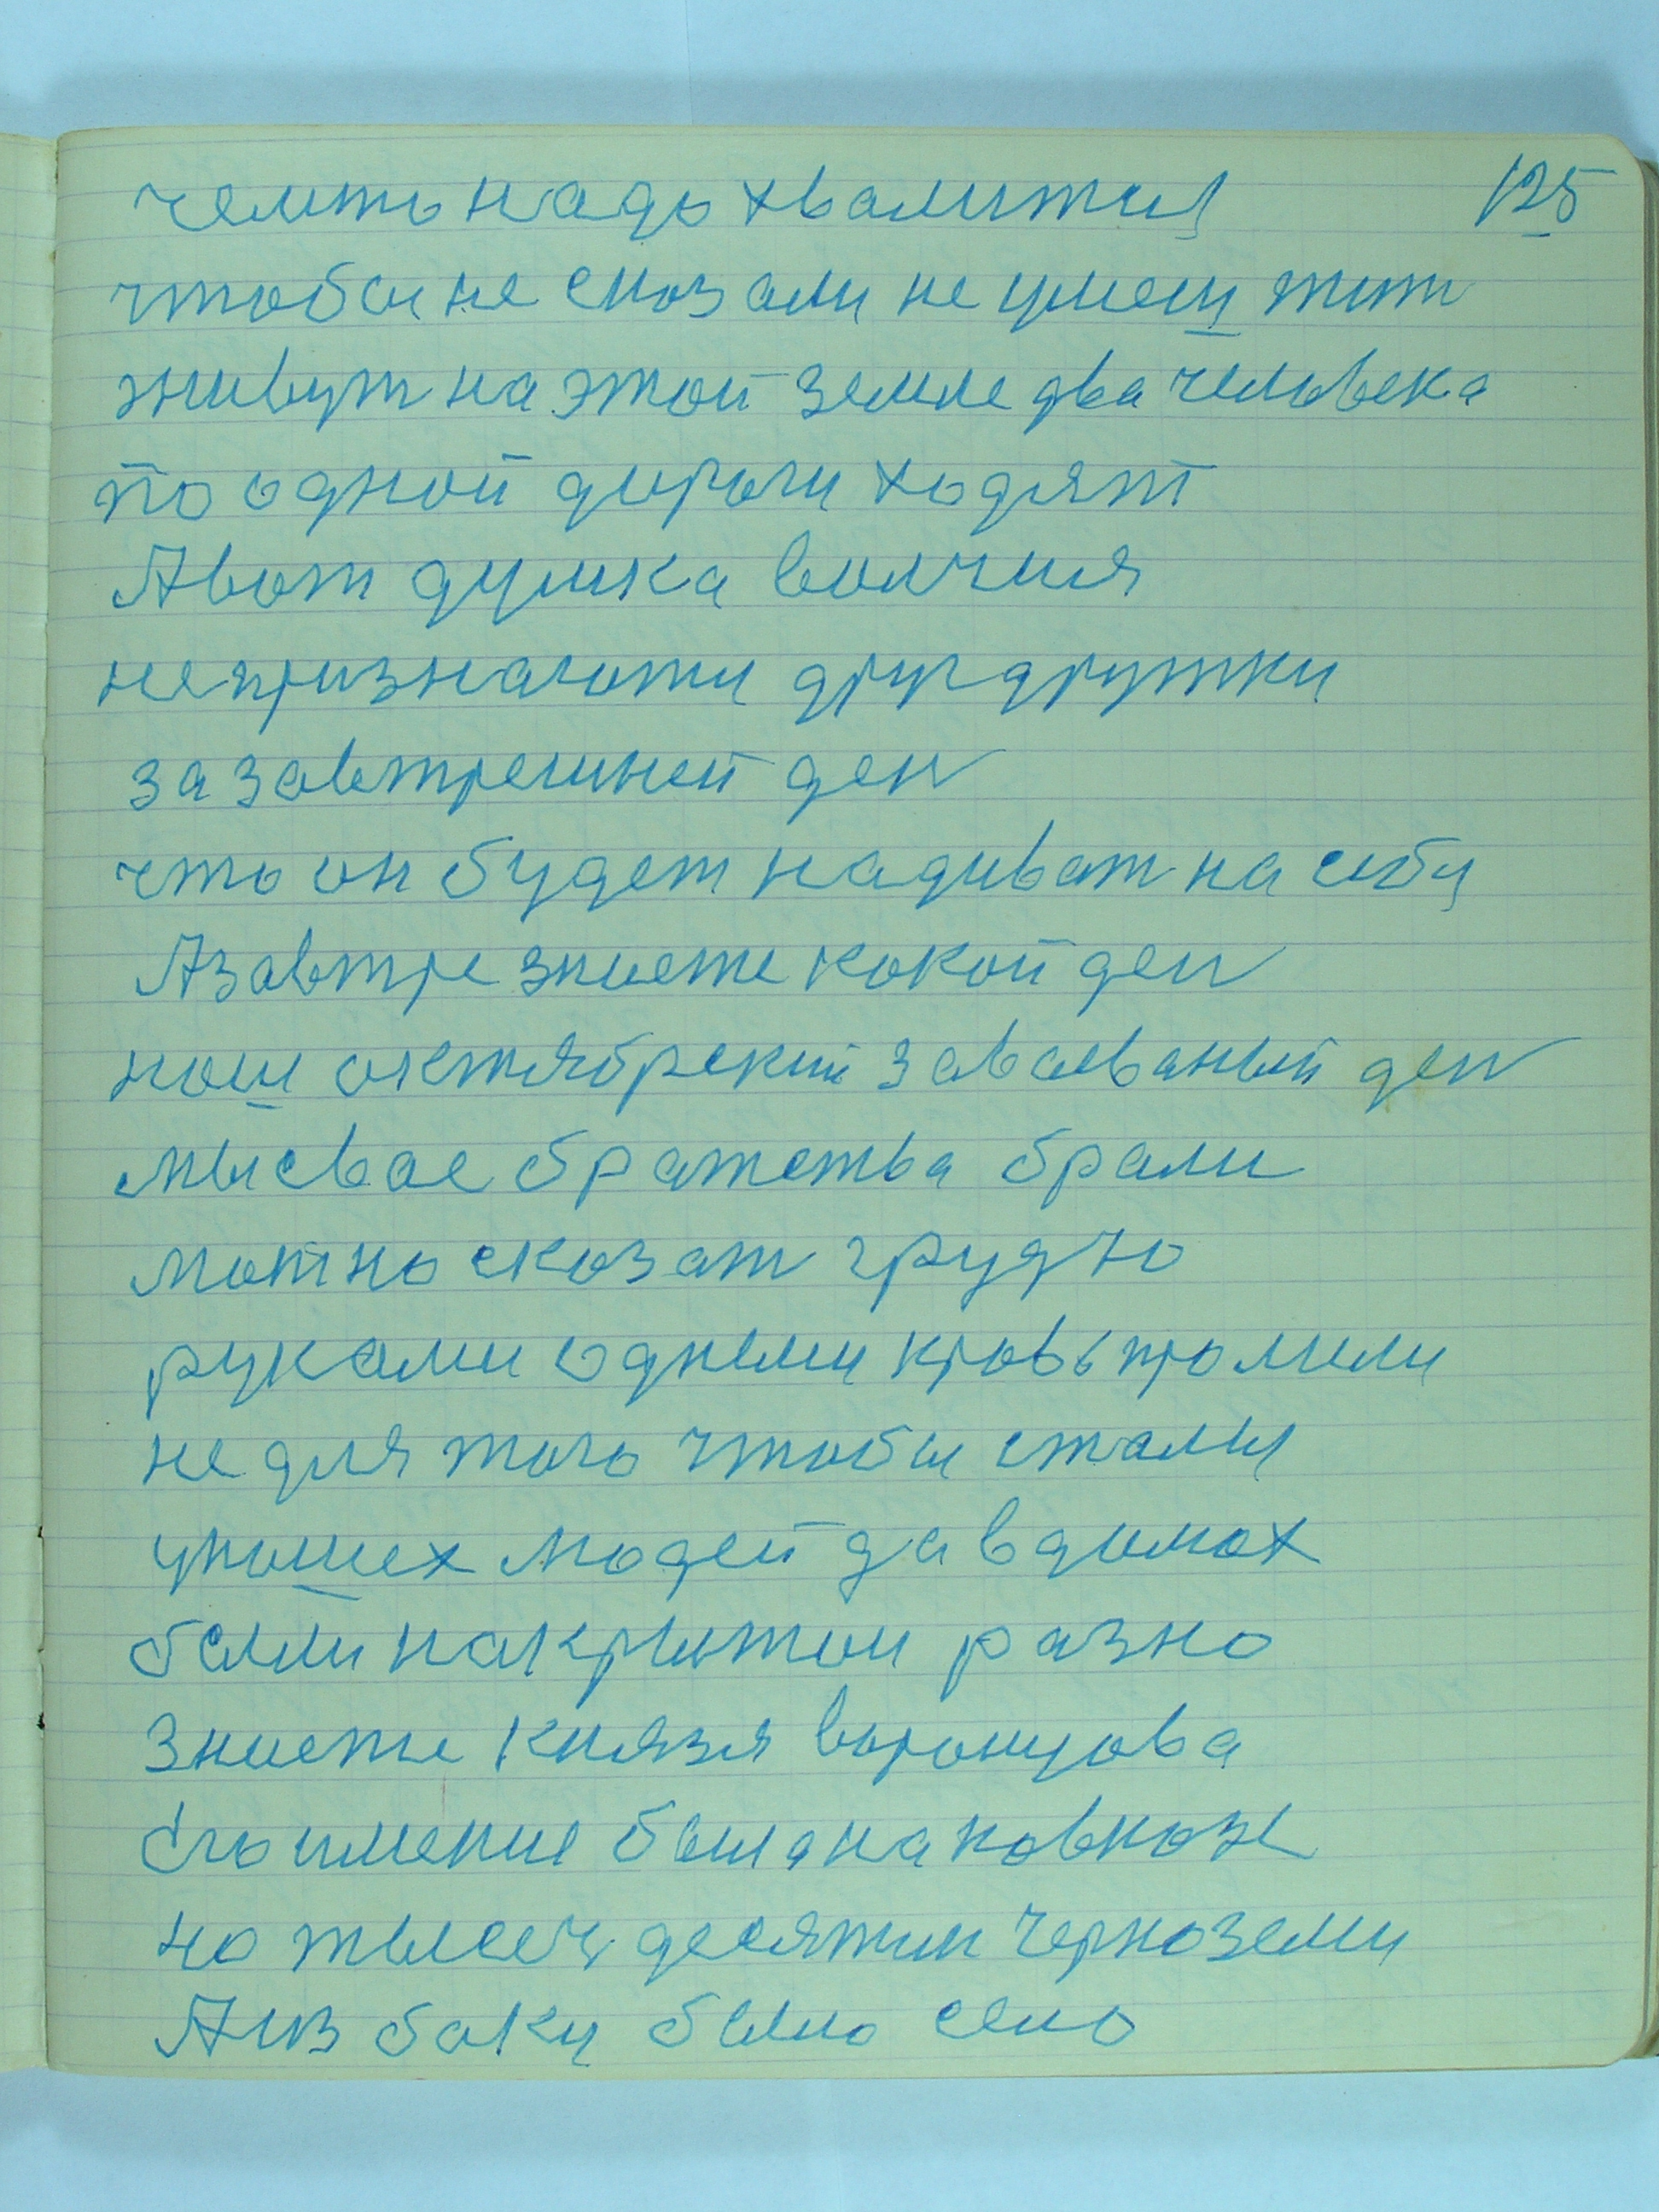 чемто надо хвалится 125
чтобы не сказали не умеш жит
живут на этой земле два человека
по одной дороги ходят
А вот думка волчия
непризнаются друг дружки
за завтрешней ден
что он будет надиват на себя
А завтре знаете какой ден
наш октябрский завоеваный ден
мы свое братства брали
можно сказат грудю
руками одними кровь пролили
не для того чтобы сталы
у наших людей да в домах
были накрытои разно
знаете князя воронцова
Его имение была на кавказе
но тысеч десятин чернозему
А из баку было село